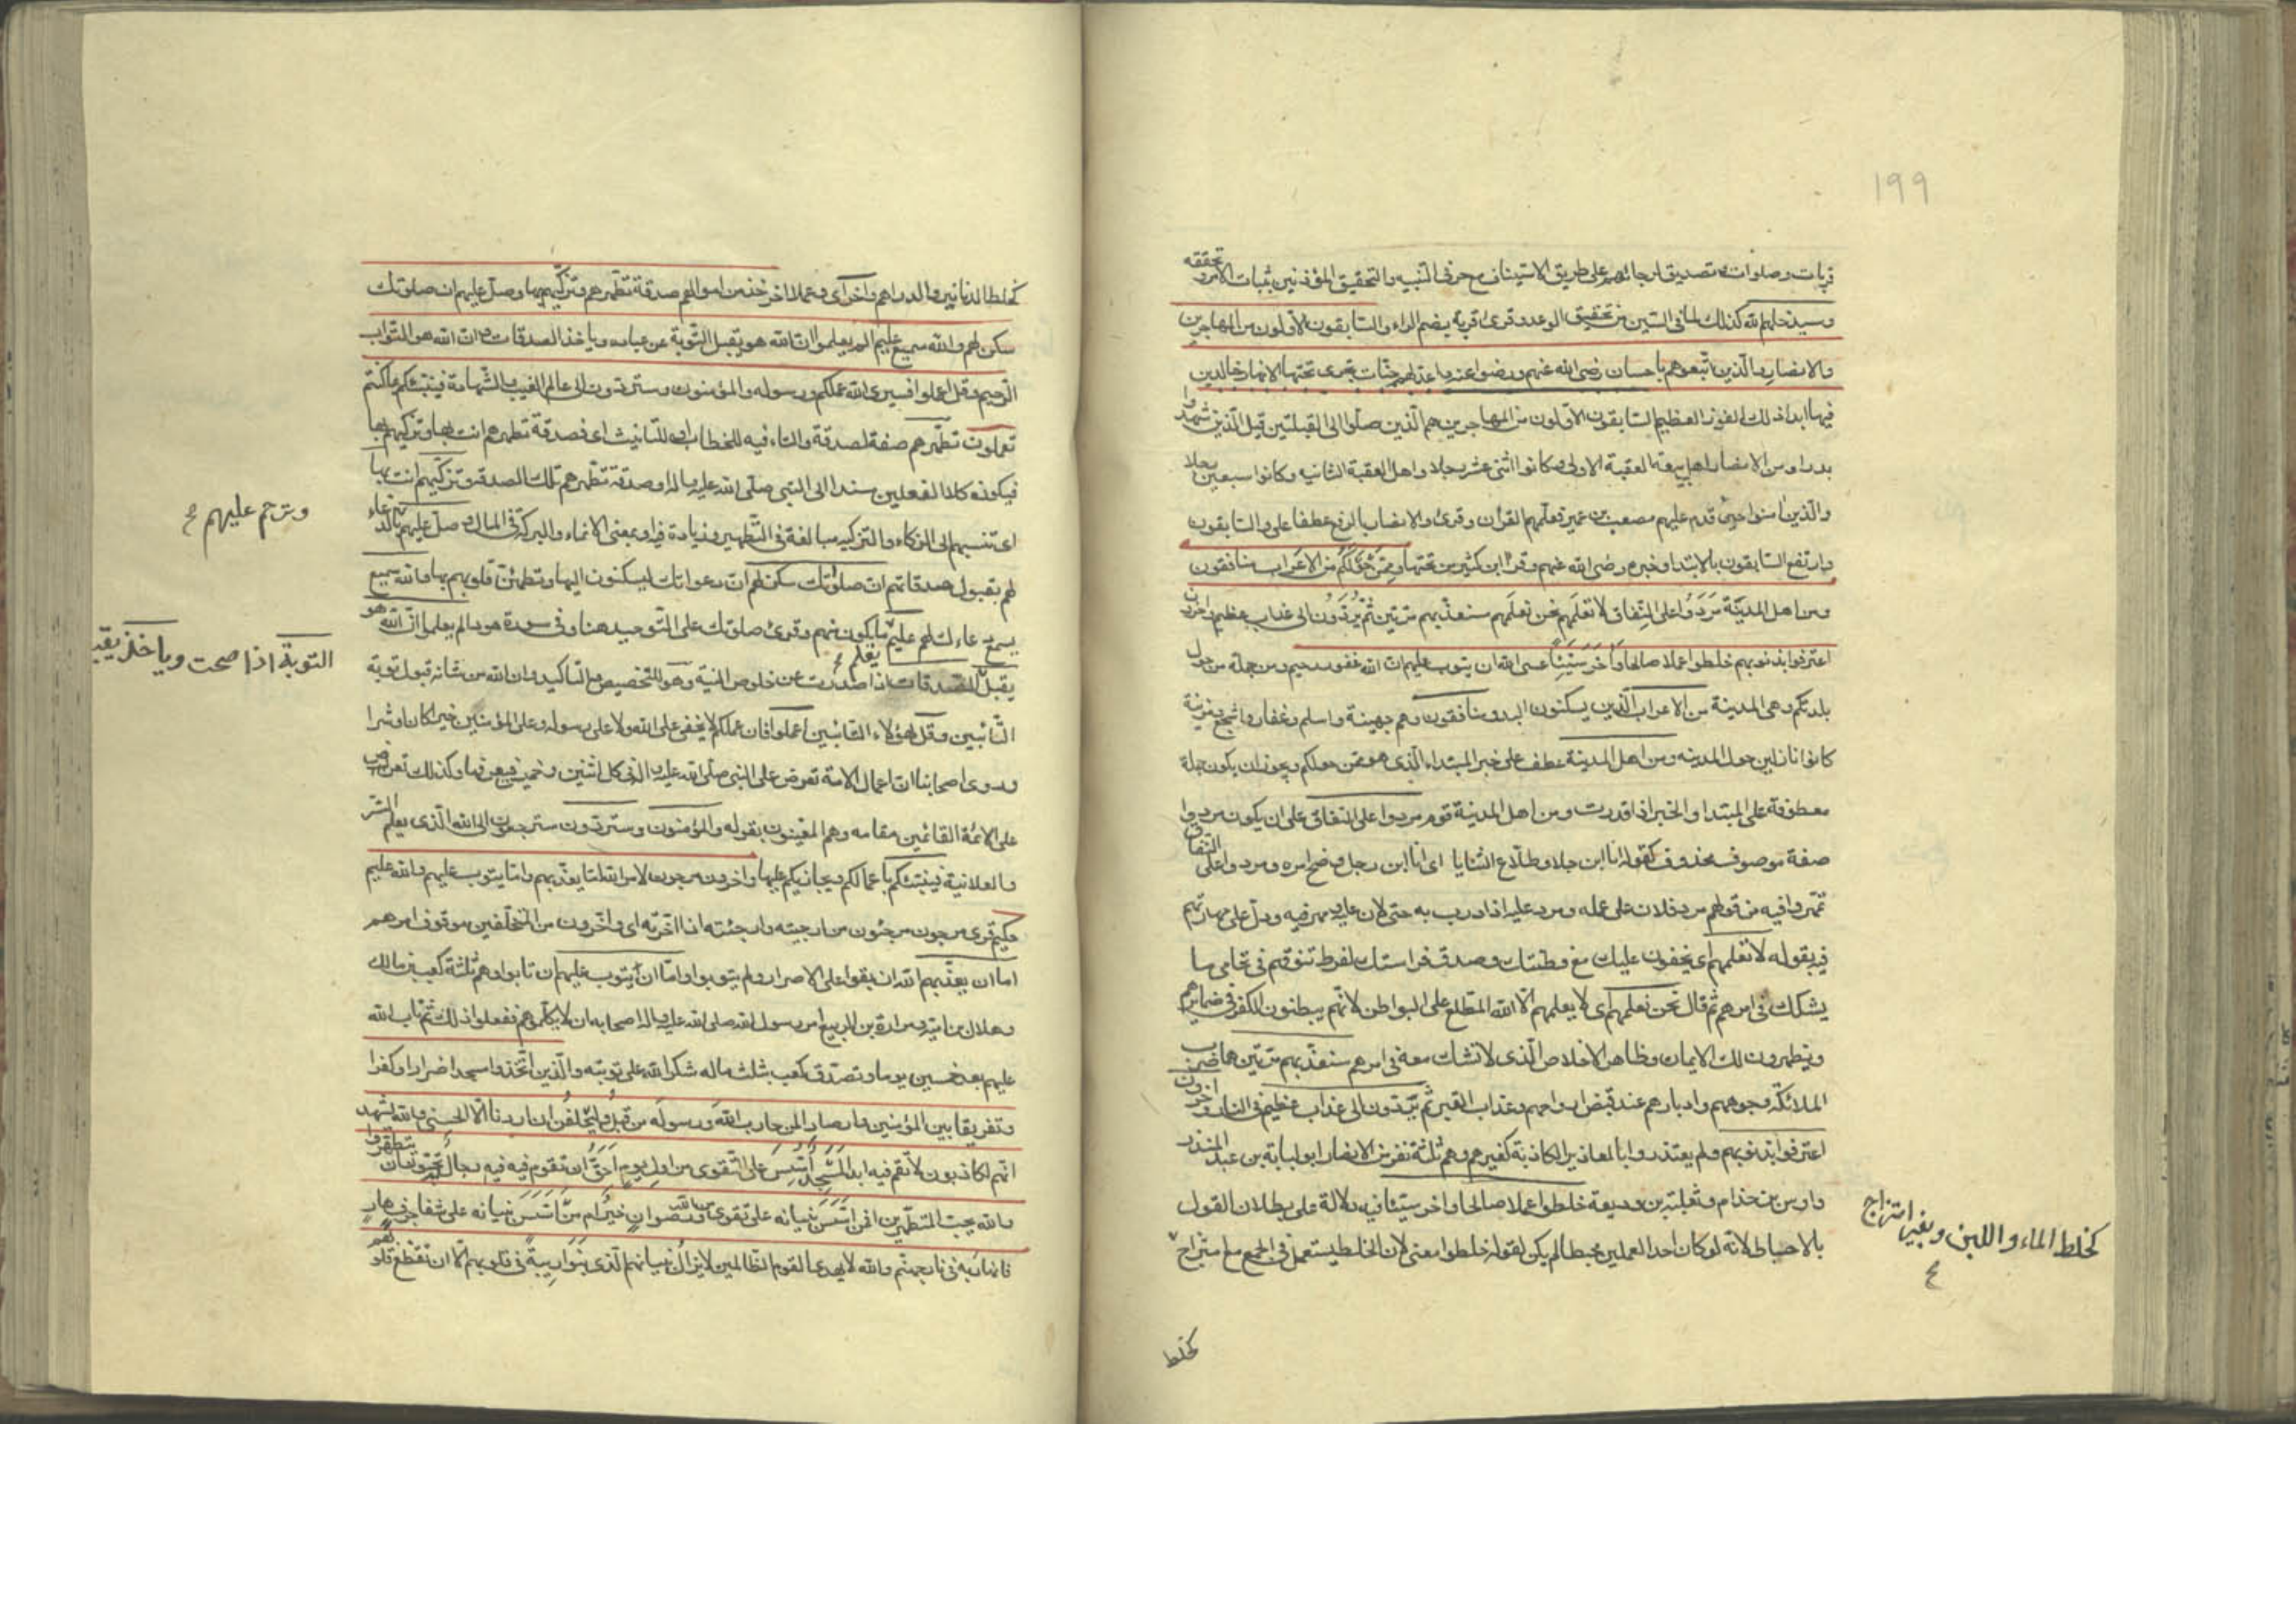 ١٩٩
قربات وصلوات وتصديق لرجائهم على طريق الاستيناف مع حرفى التنبيه والتحقيق المؤذنين بثبات الامر وتحققه
وسيدخلهم الله كذلك لما فى السين من تحقيق الوعد وقرئ قربة بضم الراء والسابقون الاولون من المهاجرين
والانصار والذين اتبعوهم باحسان رضى الله عنهم ورضوا عنه واعد لهم جنات تجرى تحتها الانهار خالدين
فيها ابدا ذلك الفوز العظيم السابقون الاولون من المهاجرين هم الذين صلوا الى القبلتين وقيل الذين شهدوا
بدرا ومن الانصار اهل بيعة العقبة الاولى وكانوا اثنى عشر رجلا واهل العقبة الثانيه وكانوا سبعين رجلا
والذين امنوا حين قدم عليهم مصعب بن عمير فعلمهم القران وقرئ والانصار بالرفع عطفا على والسابقون
وارتفع السابقون بالابتداء وخبره رضى الله عنهم وقرا ابن كثير من تحتها وممن حولكم من الاعراب منافقون
ومن اهل المدينة مردوا على النفاق لا تعلمهم نحن نعلمهم سنعذبهم مرتين ثم يردون الى عذاب عظيم واخرون
اعترفوا بذنوبهم خلطوا عملا صالحا واخر سيئا عسى الله ان يتوب عليهم ان الله غفور رحيم ومن جملة من حول
بلدتكم وهى المدينة من الاعراب الذين يسكنون البدو منافقون وهم جهينة واسلم وغفار واشجع ومزينة
كانوا نازلين حول المدينه ومن اهل المدينة عطف على خبر المبتداء الذى هو ممن حولكم ويجوز ان يكون جملة
معطوفة على المبتدا والخبر اذا قدرت ومن اهل المدينة قوم مردوا على النفاق على ان يكون مردوا
صفة موصوف محذوف كقوله انا ابن جلا وطلاع الثنايا اى انا ابن رجل وضح امره ومردوا على النفاق
تمهروا فيه من قولهم مرد فلان على عمله ومرد عليه اذا درب به حتى لان عليه ومهر فيه ودل على مهارتهم
فيه بقوله لا تعلمهم اى يخفون عليك مع فطنتك وصدق فراستك لفرط تنوقهم فى تحامى ما
يشكك فى امرهم ثم قال نحن نعلمهم اى لا يعلمهم الا الله المطلع على البواطن لانهم يبطنون الكفر فى ضمائرهم
ويظهرون لك الايمان وظاهر الاخلاص الذى لا تشك معه فى امرهم سنعذبهم مرتين هما ضرب
الملائكة وجوههم وادبارهم عند قبض ارواحهم وعذاب القبر ثم يردون الى عذاب عظيم فى النار واخرون
اعترفوا بذنوبهم ولم يعتذروا بالمعاذير الكاذبة كغيرهم وهم ثلثة نفر من الانصار ابو لبابة بن عبد المنذر
واوس بن خذام وثعلبة بن وديعة خلطوا عملا صالحا واخر سيئا فيه دلالة على بطلان القول
بالاحباط لانه لو كان احد العملين محبطا لم يكن لقوله خلطوا معنى لان الخلط يستعمل فى الجمع مع امتزاج
كخلط الماء واللبن وبغير امتزاج
كخلط
كخلط الدنانير والدراهم واخر اى وعملا اخر خذ من اموالهم صدقة تطهرهم وتزكيهم بها وصل عليهم ان صلوتك
سكن لهم والله سميع عليم الم يعلموا ان الله هو يقبل التوبة عن عباده وياخذ الصدقات وان الله هو التواب
الرحيم وقل اعملوا فسيرى الله عملكم ورسوله والمؤمنون وستردون الى عالم الغيب والشهادة فينبئكم بما كنتم
تعملون تطهرهم صفة لصدقة والتاء فيه للخطاب او للتانيث اى صدقة تطهرهم انت بها وتزكيهم بها
فيكون كلا الفعلين مسندا الى النبى صلى الله عليه واله او صدقة تطهرهم تلك الصدقة وتزكيهم انت بها
اى تنسبهم الى الزكاء والتزكيه مبالغة فى التطهير وزيادة فيه او بمعنى الانماء والبركة فى المال وصل عليهم بالدعاء
وترحم عليهم
لهم بقبول صدقاتهم ان صلوتك سكن لهم ان دعواتك يسكنون اليها وتطمئن قلوبهم بها والله سميع
يسمع دعاءك لهم عليم يعلم ما يكون منهم وقرئ صلوتك على التوحيد هنا وفى سورة هود الم يعلموا ان الله هو
التوبة اذا صحت وياخذ
يقبل الصدقات اذا صدرت عن خلوص النية وهو للتخصيص والتاكيد وان الله من شانه قبول توبة
التائبين وقل لهؤلاء التائبين اعملوا فان عملكم لا يخفى على الله ولا على رسوله وعلى المؤمنين خيرا كان او شرا
وروى اصحابنا ان اعمال الامة تعرض على النبى صلى الله عليه واله فى كل اثنين وخميس فيعرفها وكذلك تعرض
على الائمة القائمين مقامه وهم المعنيون بقوله والمؤمنون وستردون سترجعون الى الله الذى يعلم السر
والعلانية فينبئكم باعمالكم ويجازيكم عليها واخرون مرجون لامر الله اما يعذبهم واما يتوب عليهم والله عليم
حكيم قرئ مرجون ومرجئون من ارجيته وارجئته اذا اخرته اى واخرون من المتخلفين موقوف امرهم
اما ان يعذبهم الله ان بقوا على الاصرار ولم يتوبوا واما ان يتوب عليهم ان تابوا وهم ثلثة كعب بن مالك
وهلال بن امية ومرارة بن الربيع امر رسول الله صلى الله عليه واله اصحابه ان لا يكلموهم ففعلوا ذلك ثم تاب الله
عليهم بعد خمسين يوما وتصدق كعب بثلث ماله شكرا لله على توبته والذين اتخذوا مسجدا ضرارا وكفرا
وتفريقا بين المؤمنين وارصادا لمن حارب الله ورسوله من قبل وليحلفن ان اردنا الا الحسنى والله يشهد
انهم لكاذبون لا تقم فيه ابدا لمسجد اسس على التقوى من اول يوم احق ان تقوم فيه فيه رجال يحبون ان يتطهروا
والله يحب المتطهرين افمن اسس بنيانه على تقوى من الله ورضوان خير ام من اسس بنيانه على شفا جرف هار
فانهار به فى نار جهنم والله لا يهدى القوم الظالمين لا يزال بنيانهم الذى بنوا ريبة فى قلوبهم الا ان تقطع قلوبهم